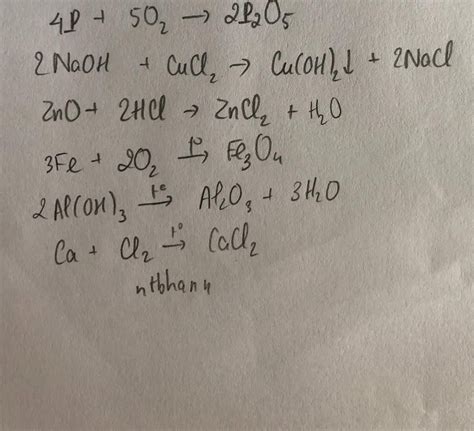 4P + 5O₂ → 2P₂O₅
2NaOH + CuCl₂ → Cu(OH)₂↓ + 2NaCl
ZnO + 2HCl → ZnCl₂ + H₂O
3Fe + 2O₂ –t°→ Fe₃O₄
2Al(OH)₃ –t°→ Al₂O₃ + 3H₂O
Ca + Cl₂ –t°→ CaCl₂
ntbhan4